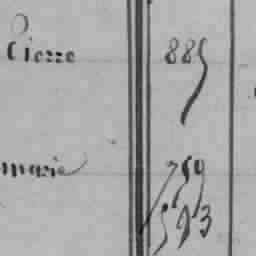 Pierre 885
marie 759
593